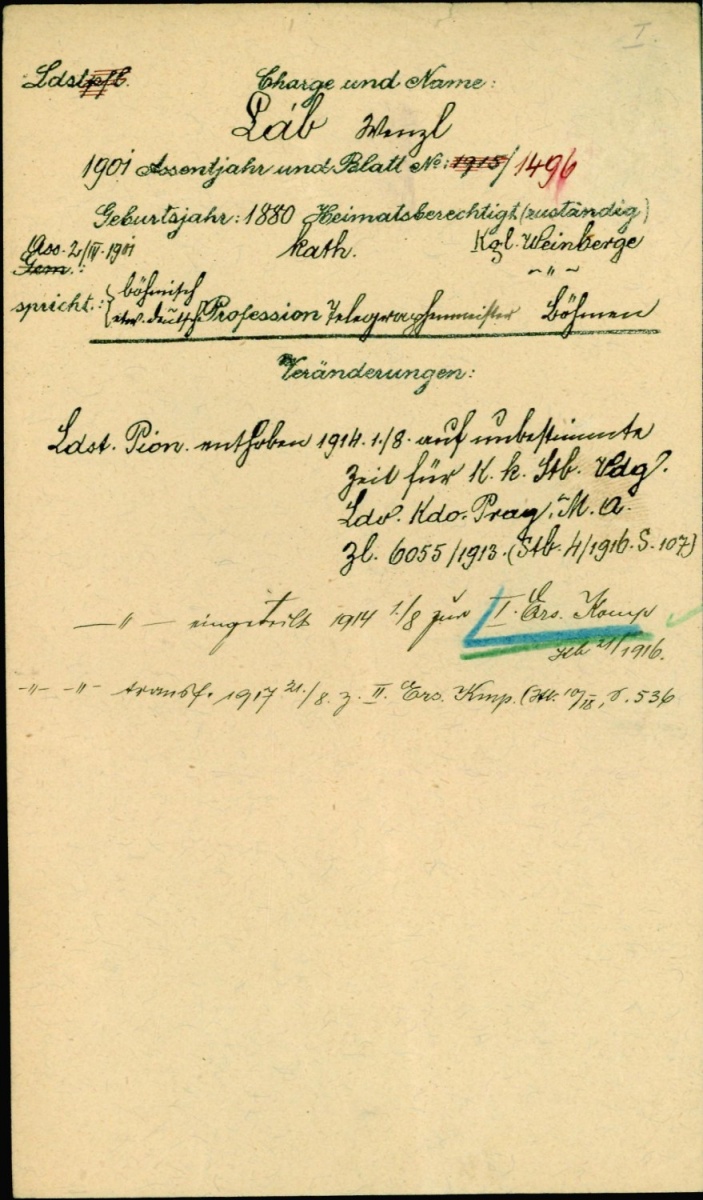 I.
Ldstpflb. Charge und Name:
Láb Wenzl
1901 Assentjahr und Blatt No: 1915/1496
Geburtsjahr: 1880 Heimatsberechtigt (zuständig)
Ass. 2/IV. 1901 kath. Kgl. Weinberge
Gem.: ~ " ~
spricht.: { böhmisch
etw. deutsch Profession Telegraphenmeister Böhmen
Veränderungen:
Ldst. Pion. enthoben 1914. 1./8. auf unbestimmte
Zeit für K. k. Stb. Vdg.
Ldv. Kdo. Prag, M. A.
Zl. 6055/1913. (Stb. 4/1916. S. 107)
— " — eingeteilt 1914 1/8 zur I. Ers. Komp
21/1916.
-"- -"- transf. 1917 21./8. z. II. Ers. Kmp. S. 536